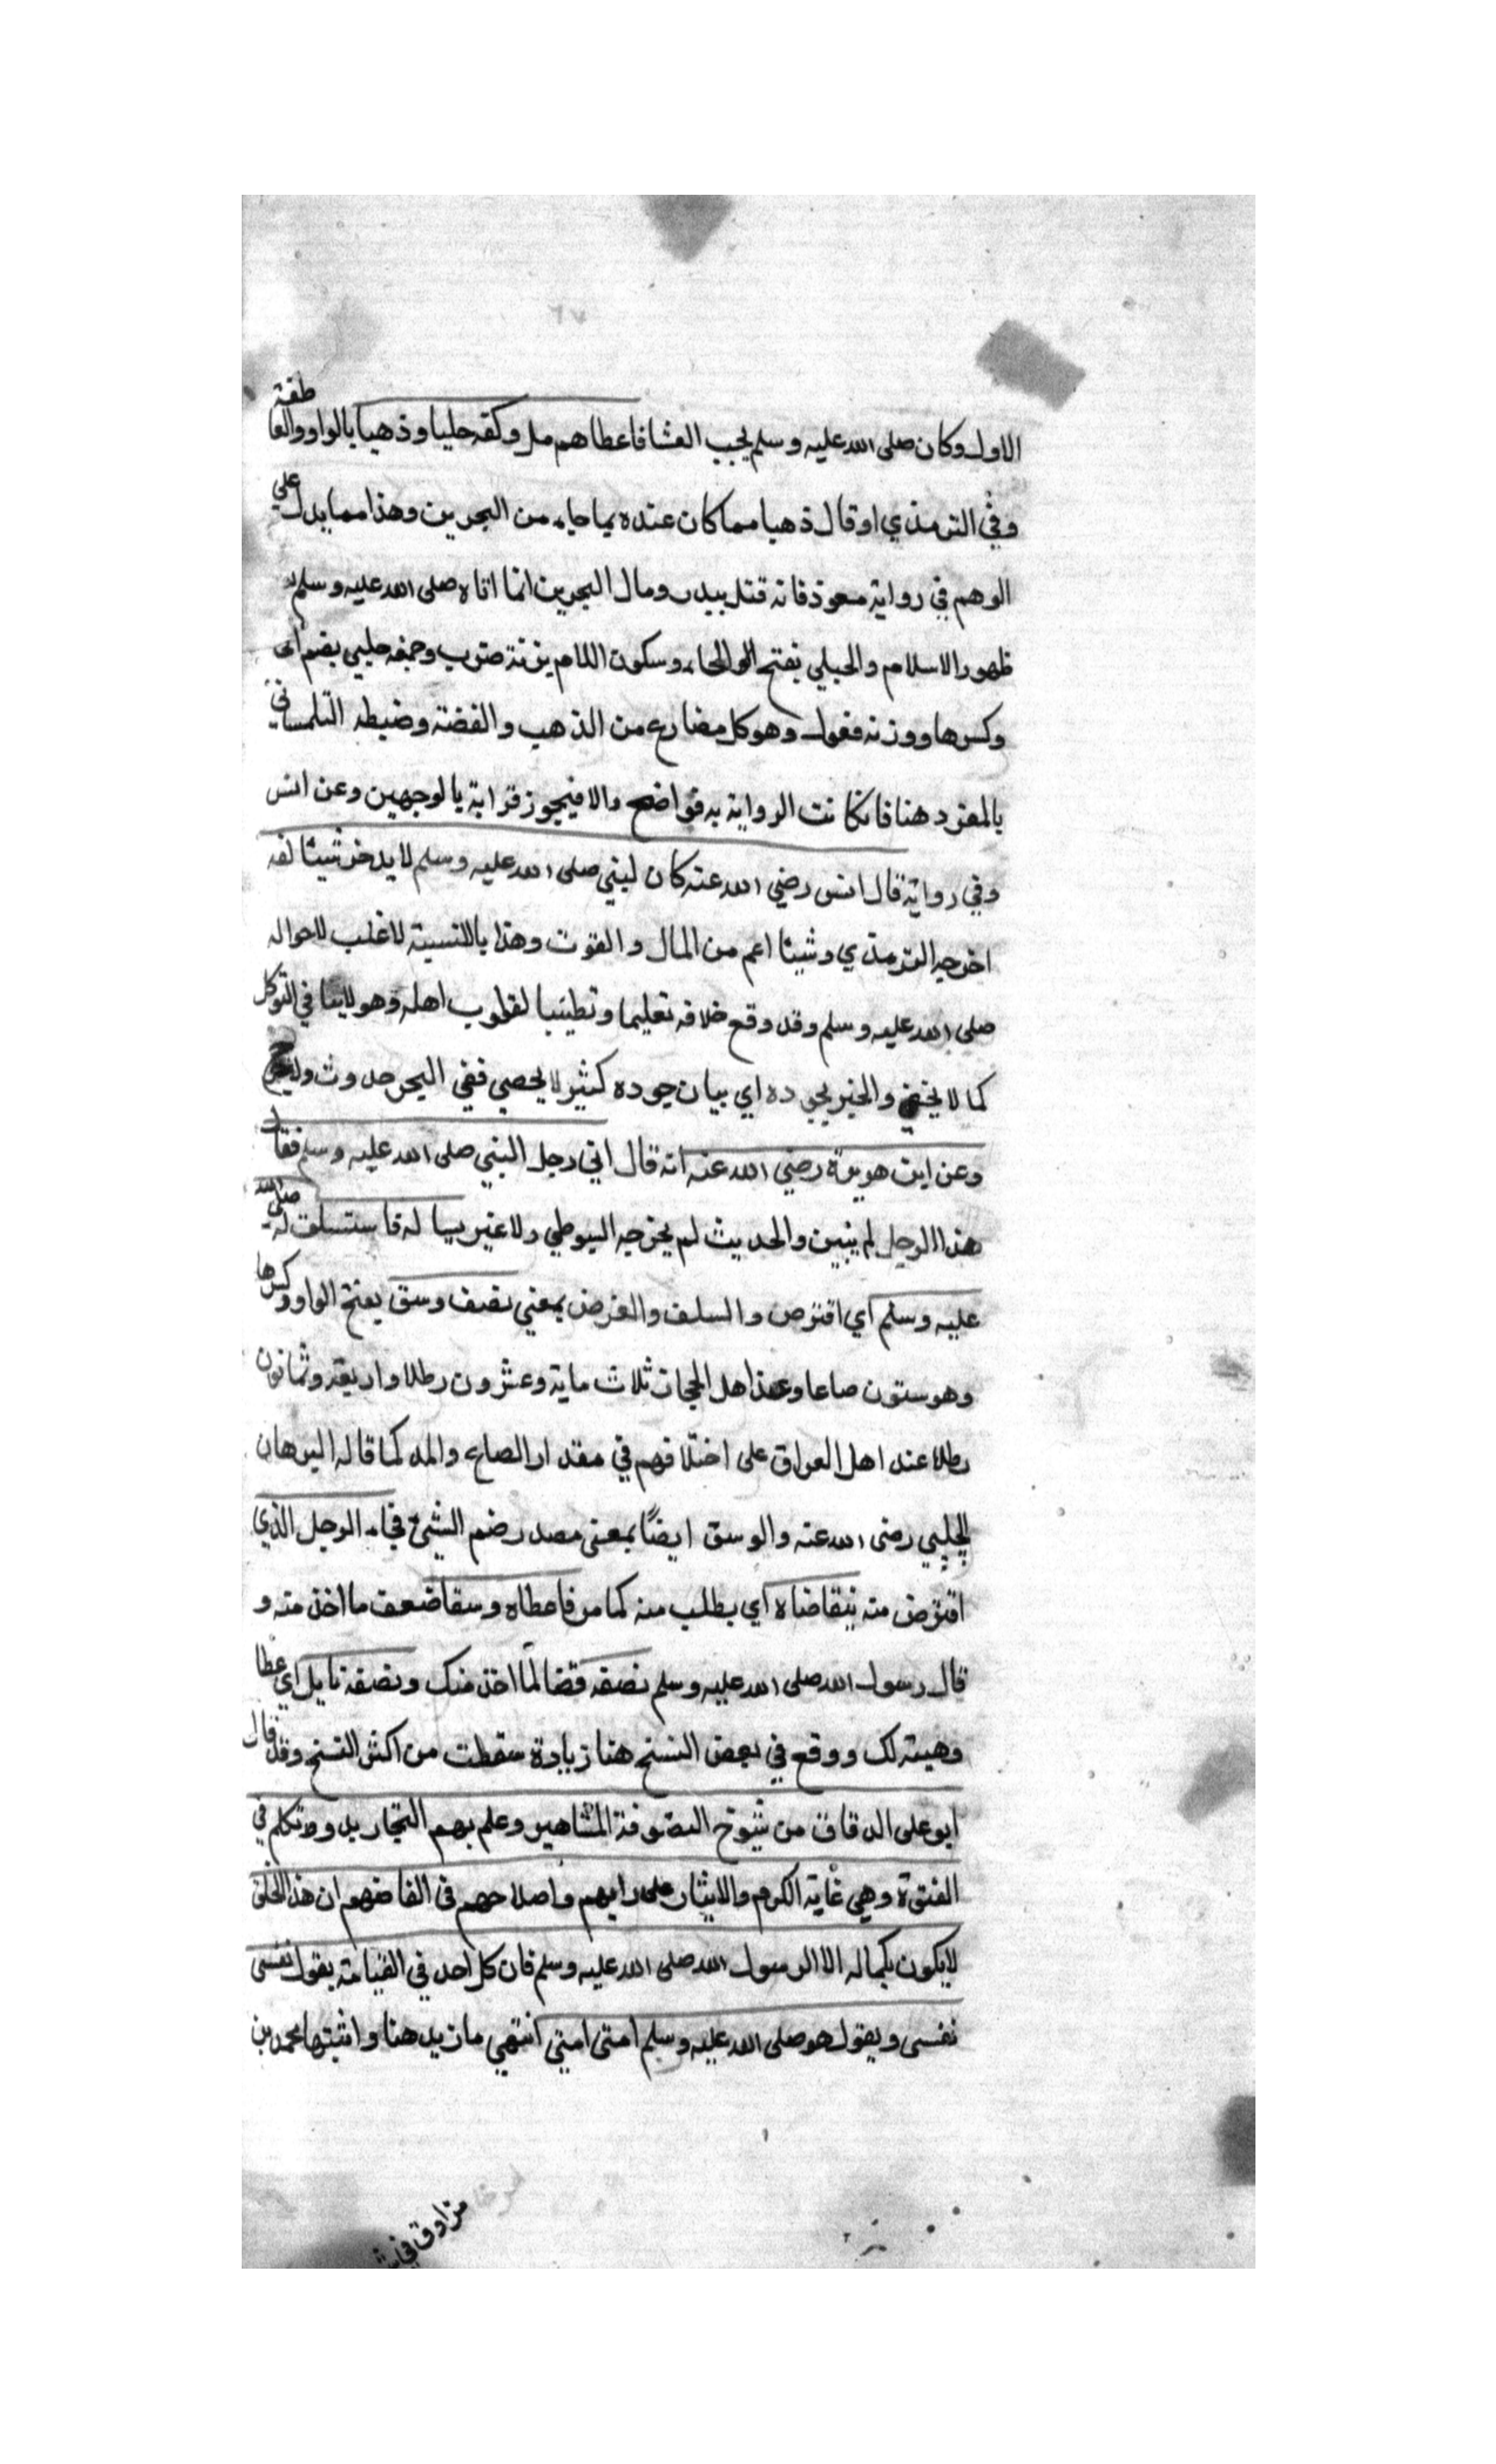 الاول وكان صلى الله عليه وسلم يحب القثا فاعطاهم مل وكفه حليا وذهبا بالواو والعا طفة
وفي الترمذي او قال ذهبا مما كان عنده بما جاء من البحرين وهذا مما يدل علي
الوهم في رواية معوذ فانه قتل ببدر ومال البحرين انما اتاه صلى الله عليه وسلم
ظهور الاسلام والحبلي بفتح الحاء وسكون اللام بزنة ضرب وجمعه حليي بضم
وكسرها ووزنه فعول وهو كل مضارع من الذهب والفضة وضبطه التلمساني
بالمفرد هنا فان كانت الرواية به فواضح والا فيجوز قراية بالوجهين وعن انس
وفي رواية قال انس رضي الله عنه كان لبني صلى الله عليه وسلم لا يدخر شيئا لغد
اخرجه الترمذي وشيئا اعم من المال والقوت وهذا بالنسبة لاغلب لاحواله
صلى الله عليه وسلم وقد وقع خلافه تعليما وتطييبا لقلوب اهله وهو لاينافي التوكل
كما لا يخفي والخبر بجوده اي بيان جوده كثير لا يحصي ففي البحر حدوث ولا حرج
وعن ابت هريرة رضي الله عنه انه قال اتي رجل النبي صلى الله عليه وسلم فقال
هذا الرجل لم يتبين والحديث لم يخرجه السيوطي ولا غير يسا له فا ستسلف له صلى الله
عليه وسلم اي اقترض والسلف والقرض بمعني نصف وسق بفتح الواو وكسرها
وهو ستون صاعا وعند اهل الحجاز ثلاث ماية وعشرون رطلا واربعة وثمانون
رطلا عند اهل العراق على اختلافهم في مقدار الصاع والمد كما قاله البرهان
الحلبي رضى الله عنه والوسق ايضًا بمعنى مصدر ضم الشيء فجاء الرجل الذي
اقترض منه يتقاضاه اي يطلب منه كما مر فاعطاه وسقا ضعف ما اخذ منه و
قال رسول الله صلى الله عليه وسلم نصفه قضا لما اخذ منك ونصفه نايل اي عطا
وهبته لك ووقع في بعض النسخ هنا زيادة سقطت من اكثر النسخ وقد قال
ابو على الدقاق من شيوخ الصوفة المشاهير وعلم بهم التجاريد وتكلم في
الفتوة وهي غاية الكرم والايثار على رايهم واصلاحهم في الفاضهم ان هذا الخلق
لا يكون بكماله الا الرسول الله صلى الله عليه وسلم فان كل احد في القيامة يقول نفسى
نفسى ويقول هو صلى الله عليه وسلم امتى امتى انتهي ما زيد هنا واثبتها محمد بن